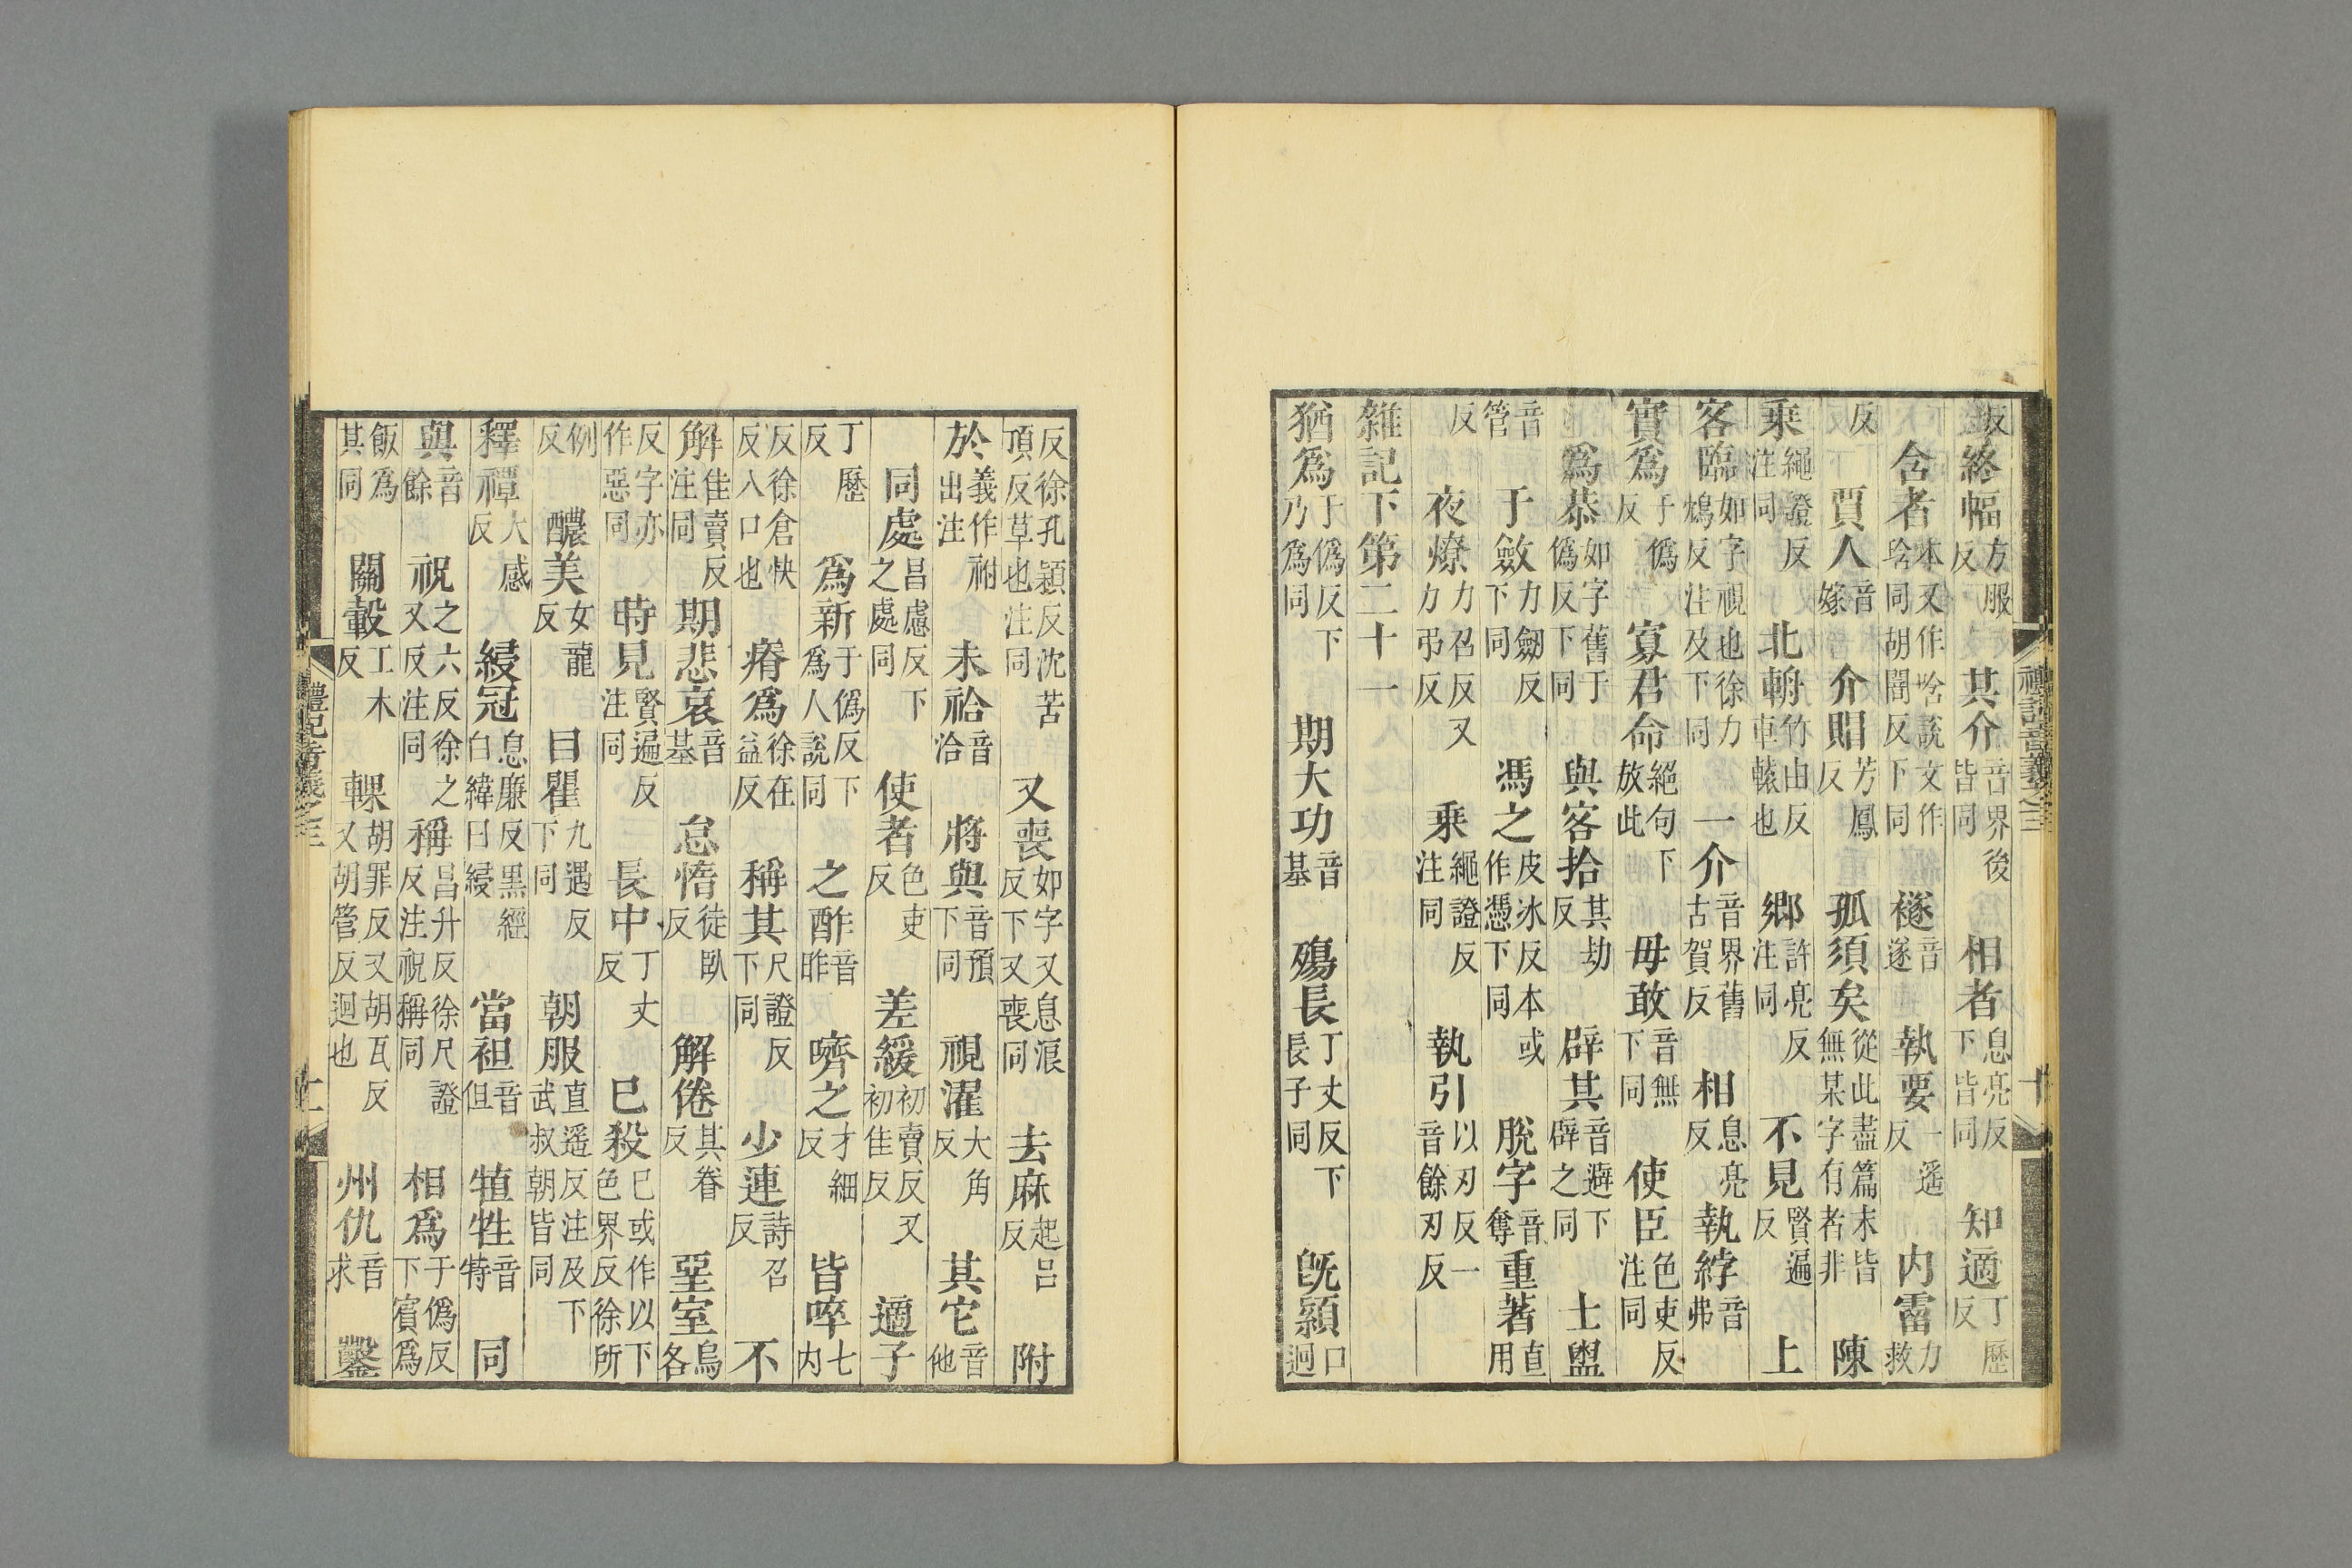 反終幅方服反其介音界後皆同相者息亮反下皆同知適丁歷反
含者本又作唅說文作琀同胡闇反下同襚音遂執要一遥反内霤力救
反賈人音嫁介賵芳鳳反孤須矣從此盡篇末皆無某字有者非陳
乘繩證反注同北輈竹由反車轅也鄉許亮反注同不見賢遍反上
客臨如字視也徐力鴆反注及下同一介音界舊古賀反相息亮反執綍音弗
實爲于僞反寡君命絕句下放此毋敢音無下同使臣色吏反注同
爲恭如字舊于僞反下同與客拾其劫反辟其音避下辟之同士盥
音管于斂力劒反下同馮之皮冰反本或作憑下同脫字音奪重著直用
反夜燎力召反又力弔反乘繩證反注同執引以刃反一音餘刃反
雜記下第二十一
猶爲于僞反下乃爲同期大功音基殤長丁丈反下長子同旣顈口迥
反徐孔穎反沈苦頂反草也注同又喪如字又息浪反下又喪同去麻起呂反附
於義作祔出注未祫音洽將與音預下同視濯大角反其它音他
同處昌慮反下之處同使者色吏反差緩初賣反又初佳反適子
丁歷反爲新于僞反下爲人說同之酢音昨嚌之才細反皆啐七内
反徐倉快反入口也瘠爲徐在益反稱其尺證反下同少連詩召反不
解佳賣反注同期悲哀音基怠惰徒臥反解倦其眷反堊室烏各
反字亦作惡同時見賢遍反注同長中丁丈反已殺已或作以下色界反徐所
例反醲美女龍反目瞿九遇反下同朝服直遥反注及下武叔朝皆同
釋禫大感反綅冠息廉反黑經白緯曰綅當袒音但犆牲音特同
與音餘祝之六反徐之又反注同稱昌升反徐尺證反注祝稱同相爲于僞反下賓爲
飯爲其同關轂工木反輠胡罪反又胡瓦反又胡管反迴也州仇音求鑿
禮記音義之三
十
禮記音義之三
十一